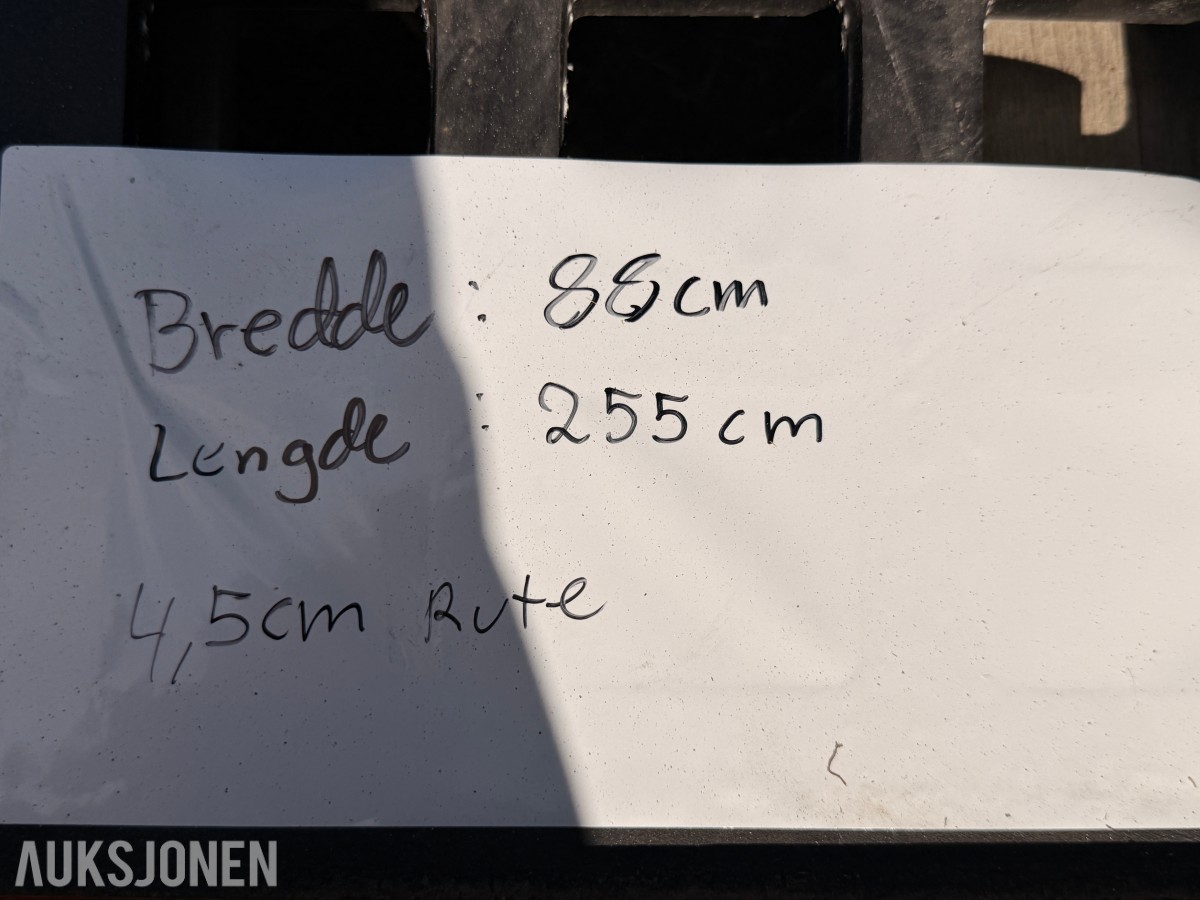 Bredde : 88cm
Lengde : 255 cm
4,5cm Rute
AUKSJONEN